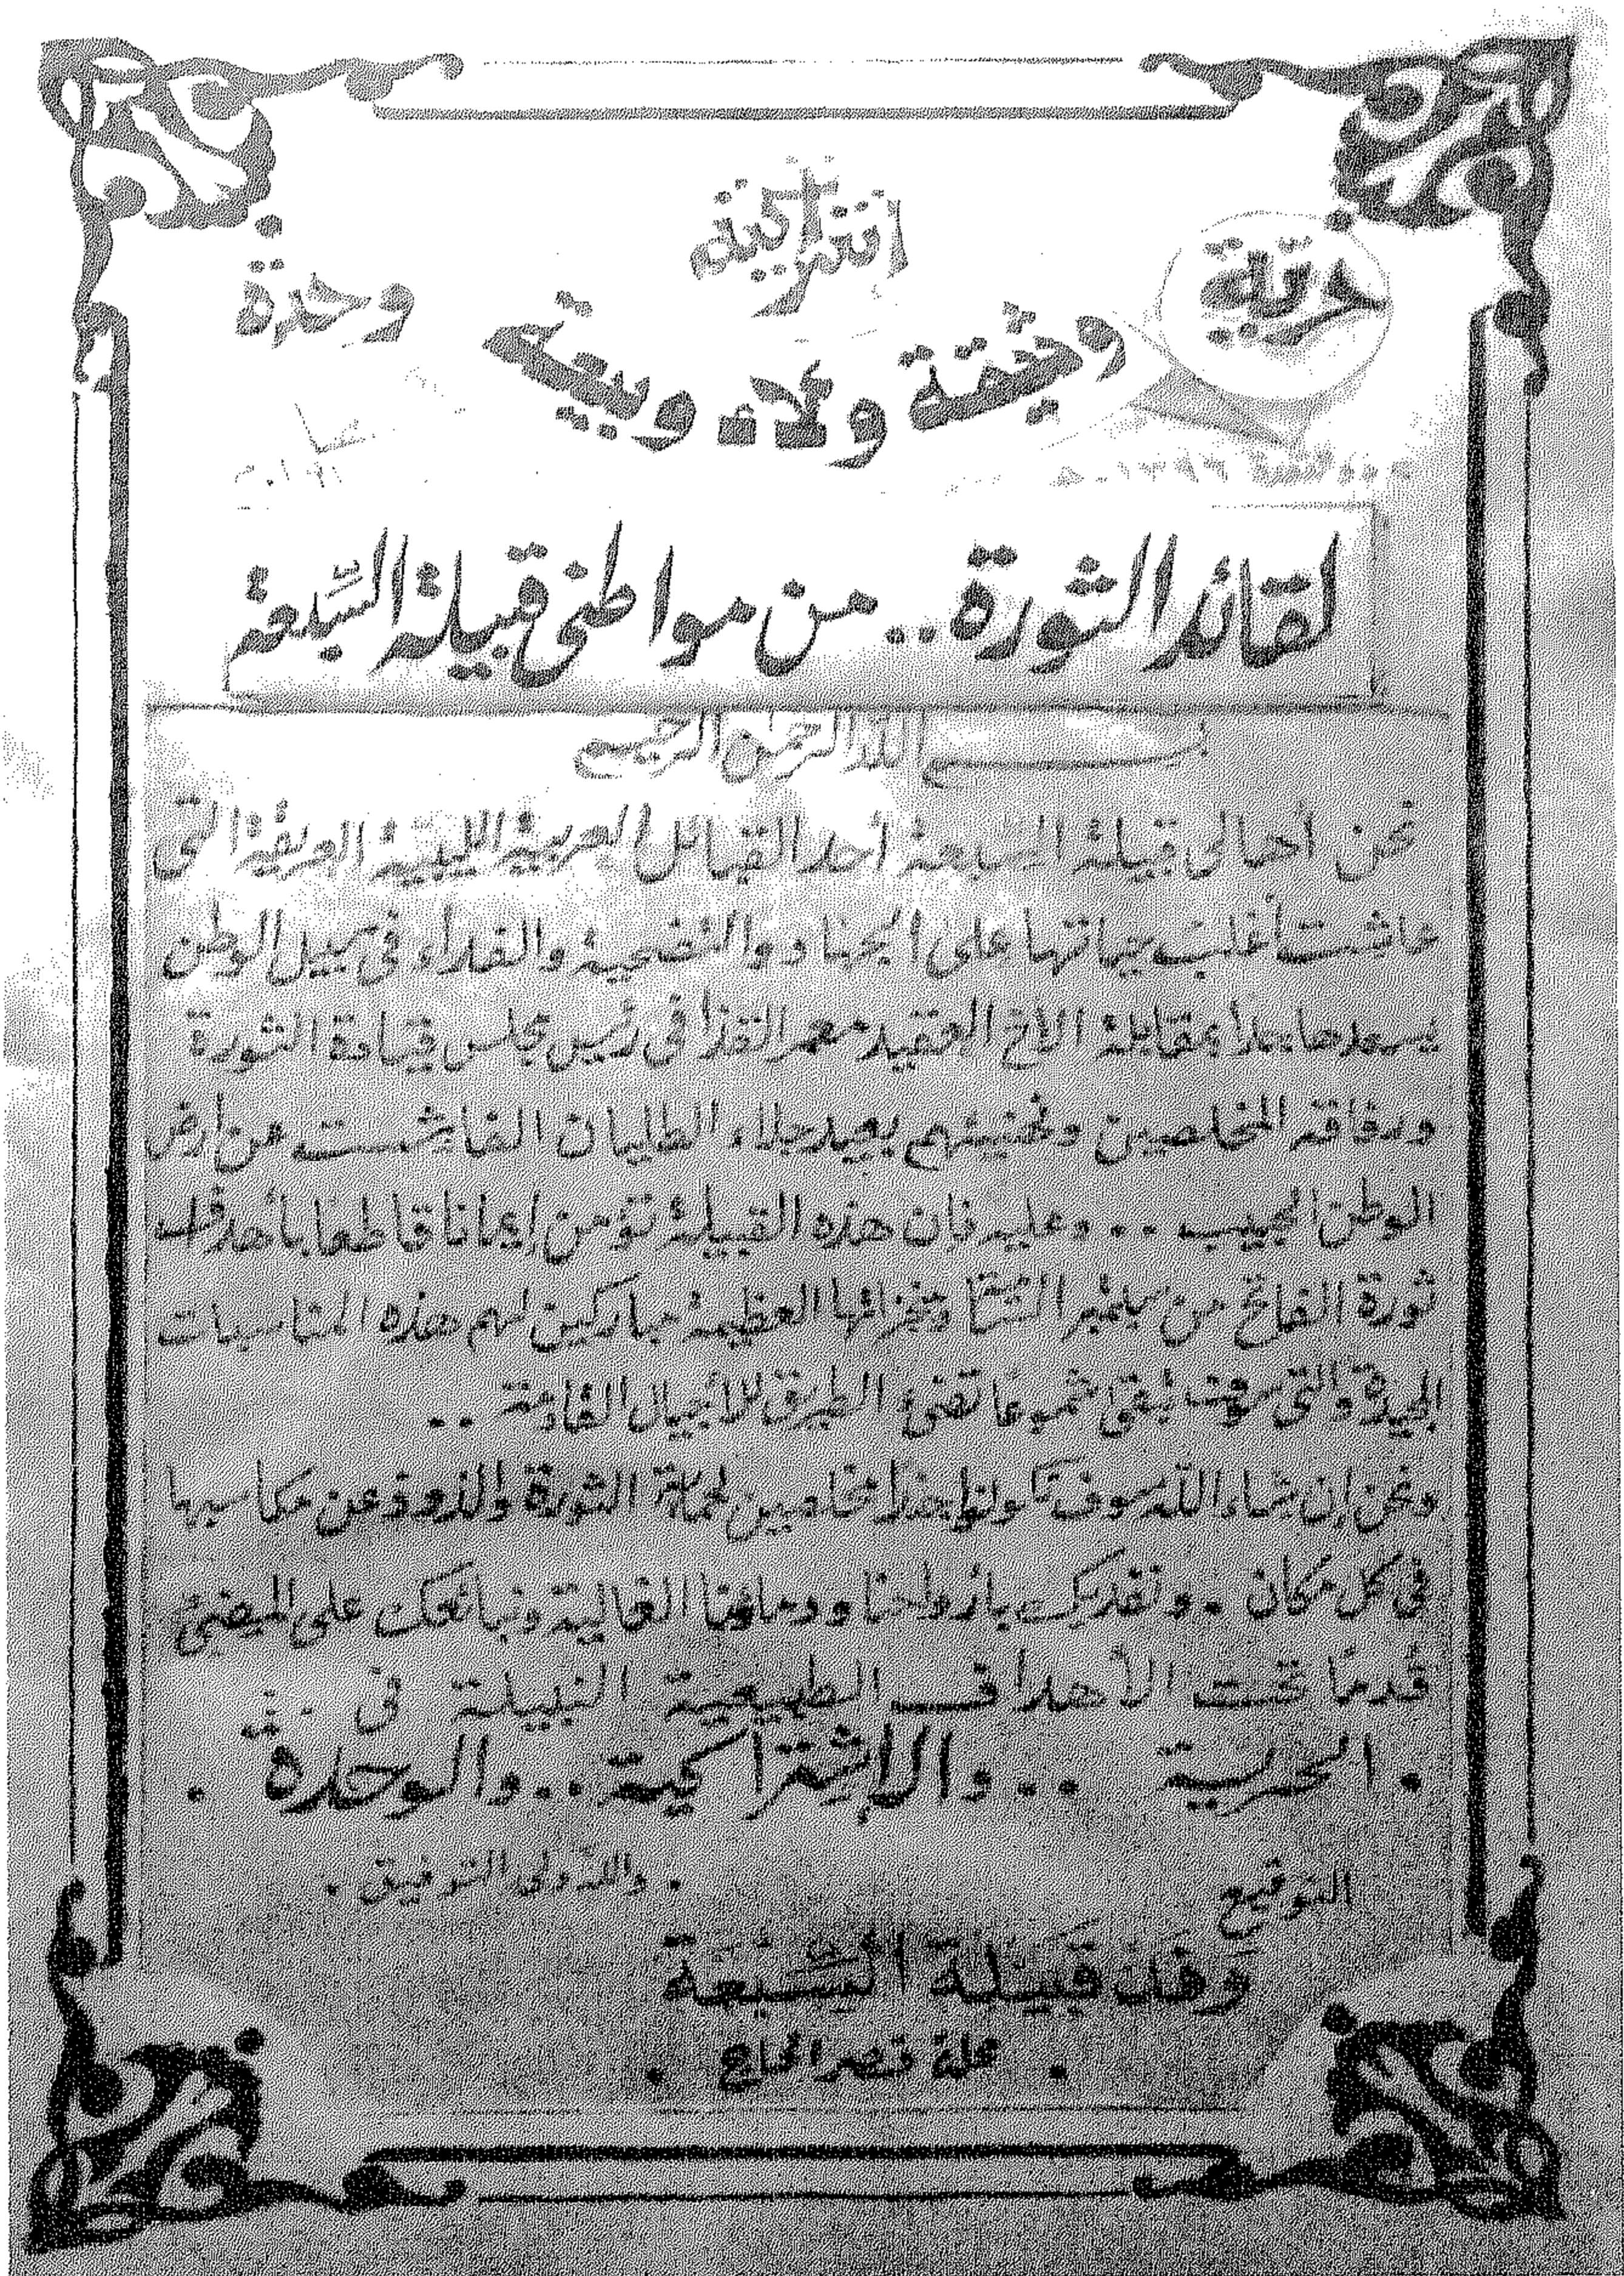 اشتراكية
حرية
وحدة
وثيقة ولاء وبيعة
لقائد الثورة .. من مواطني قبيلة السبعة
بسم الله الرحمن الرحيم
نحن أهالى قبيلة السبعة أحد القبائل العربية الليبية العريقة التى
عاشت أغلب حياتها على الجهاد والتضحية والفداء فى سبيل الوطن
يسعدها جداً بمقابلة الاخ العقيد معمر القذافى رئيس مجلس قيادة الثورة
ورفاقه المخلصين وتهنيئهم بعيد جلاء الطليان الفاشست عن أرض
الوطن الحبيب .. وعليه فإن هذه القبيلة تؤمن إيمانا قاطعا بأهداف
ثورة الفاتح من سبتمبر العظيمة مباركين لهم هذه المناسبات
المجيدة والتى سوف تبقى شموعا تضئ الطريق للأجيال القادمة ..
ونحن إن شاء الله سوف نكون جنداً مخلصين لحماية الثورة والذود عن مكاسبها
فى كل مكان . ونفديك بأرواحنا ودمائنا الغالية ونبايعك على المضئ
قدمًا تحت الأهداف الطبيعية النبيلة فى
. الحرية .. والإشتراكية .. والوحدة .
. والله ولى التوفيق .
التوقيع
وفد قبيلة السبعة
. محلة قصر الحاج .